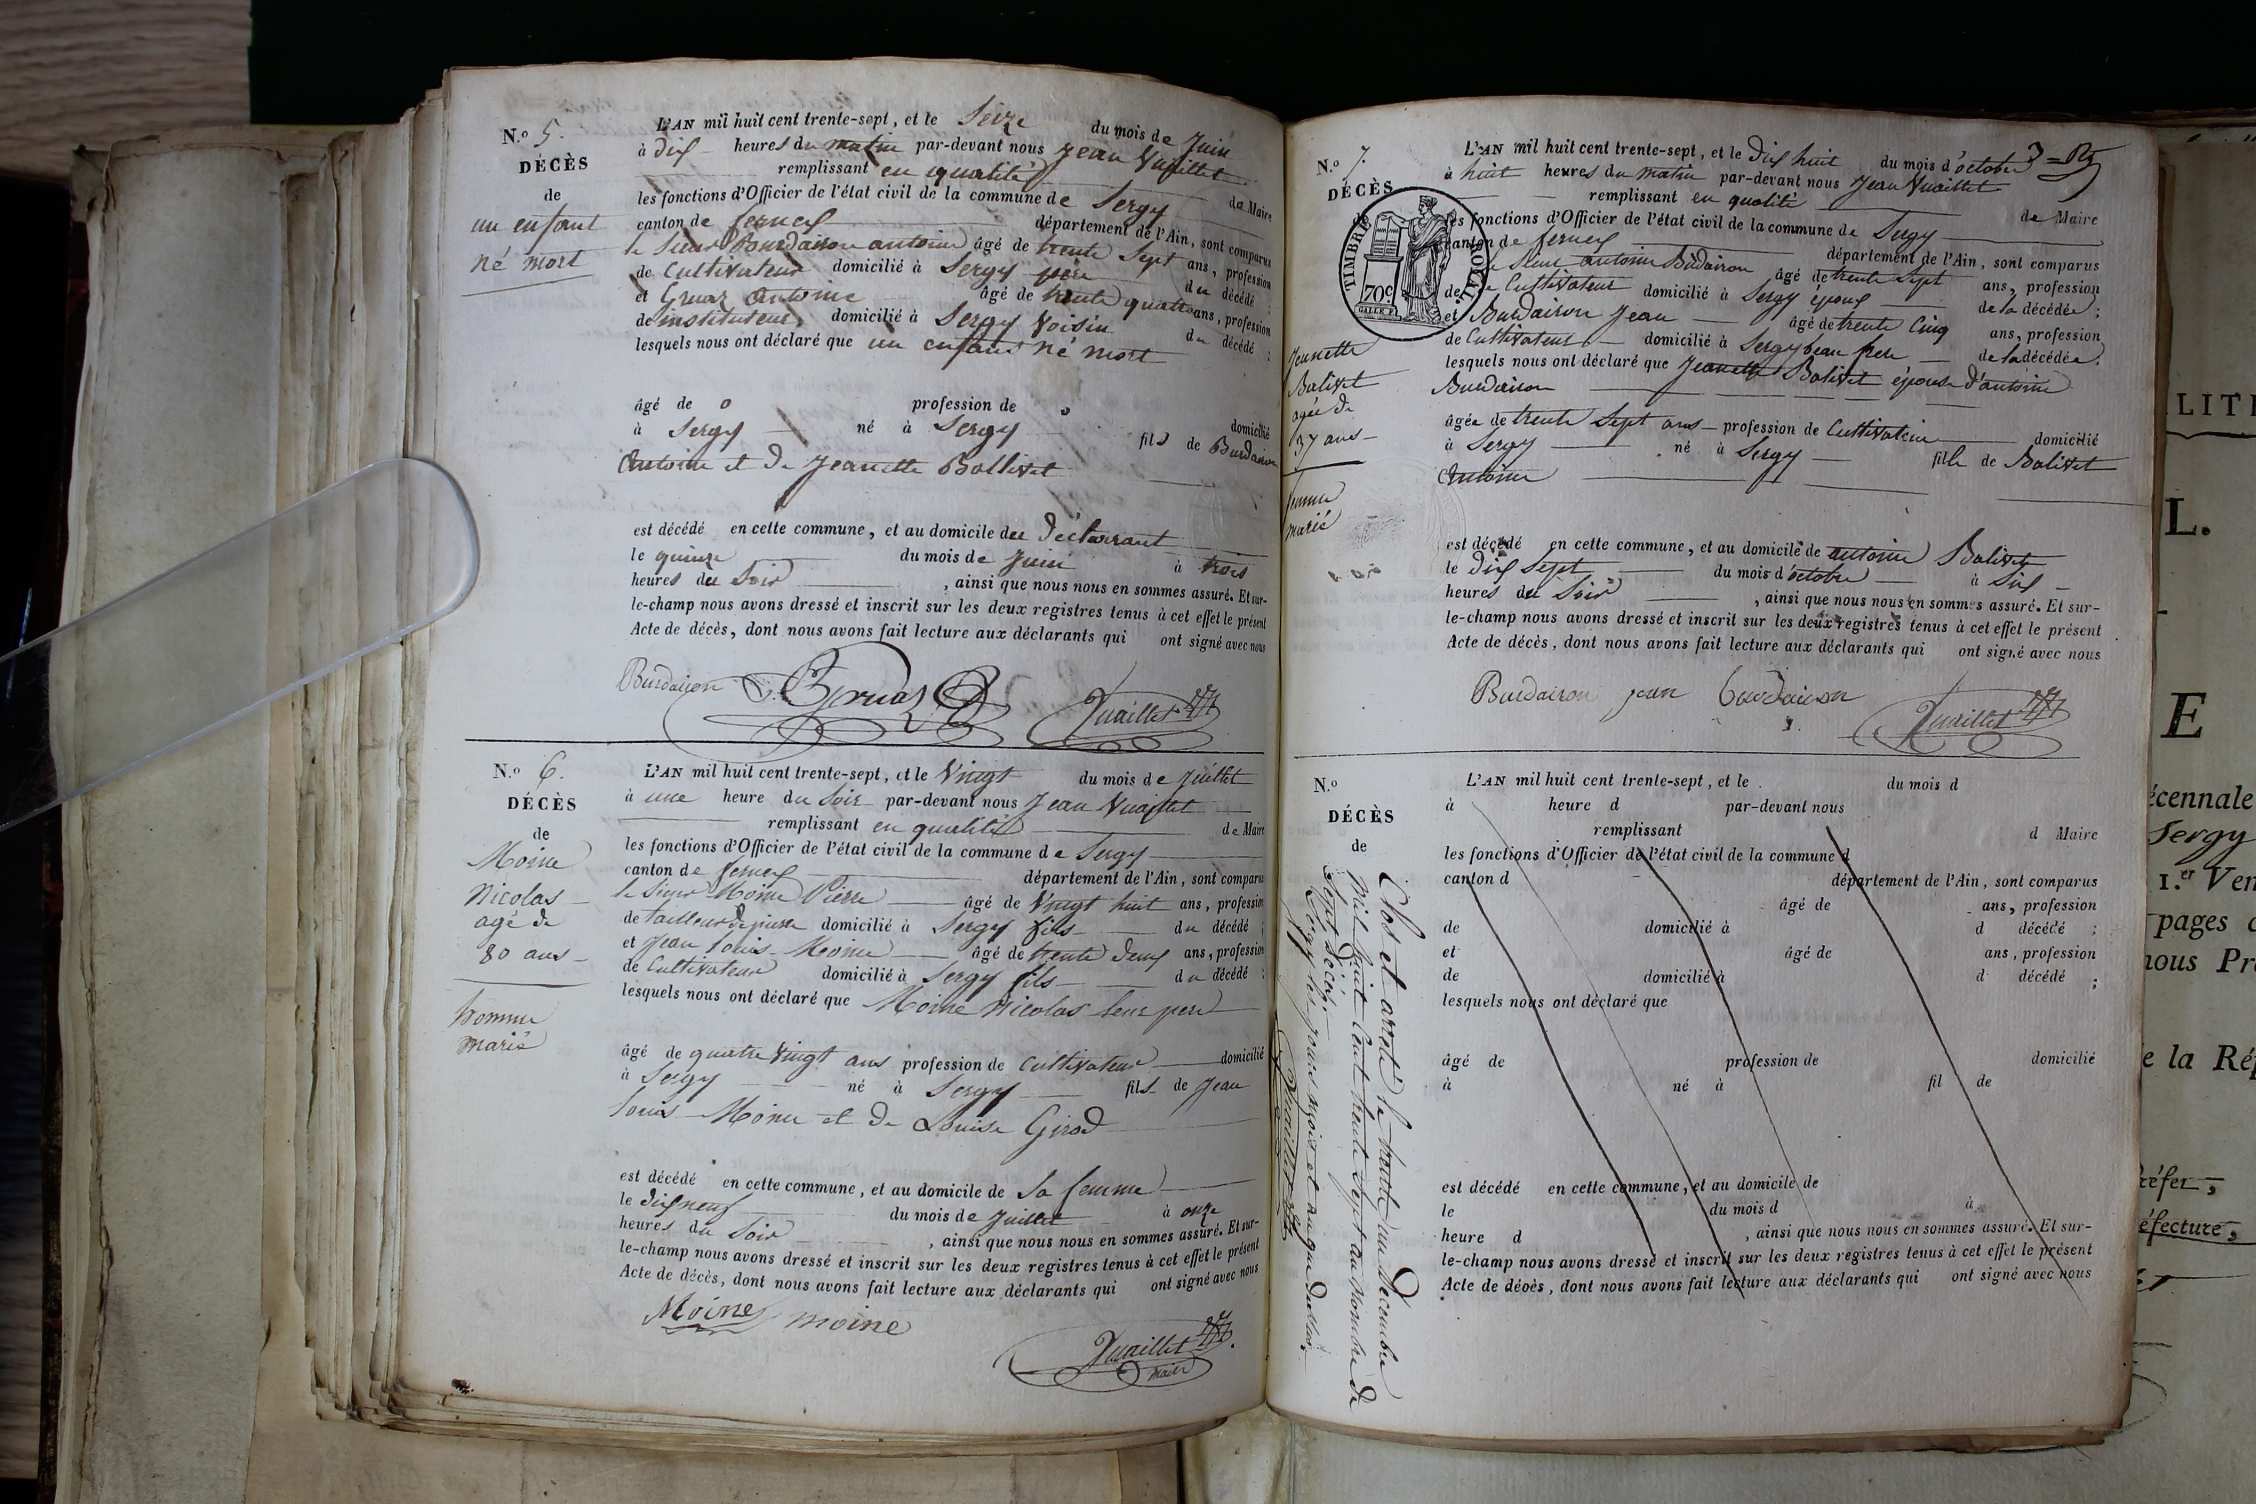 N.o 5.
DÉCÈS
de
un enfant
né mort
L'AN mil huit cent trente-sept, et le Seize du mois de Juin
à dix heures du matin par-devant nous Jean Vuaillet
remplissant en qualité de Maire
les fonctions d'Officier de l'état civil de la commune de Sergy
canton de ferney département de l'Ain, sont comparus
le Sieur Burdairon antoine âgé de trente Sept ans, profession
de Cultivateur domicilié à Sergy père du décédé ;
et Gruaz antoine âgé de trente quatre ans, profession
de instituteur, domicilié à Sergy Voisin du décédé ;
lesquels nous ont déclaré que un enfant né mort
âgé de 0 profession de 0 domicilié
à Sergy né à Sergy fils de Burdairon
Antoine et de Jeanette Ballivet
est décédé en cette commune, et au domicile du déclarant
le quinze du mois de Juin à trois
heures du Soir, ainsi que nous nous en sommes assuré. Et sur-
le-champ nous avons dressé et inscrit sur les deux registres tenus à cet effet le présent
Acte de décès, dont nous avons fait lecture aux déclarants qui ont signé avec nous
Burdairon Gruaz Vuaillet
N.o 6.
DÉCÈS
de
Moine
Nicolas
agé de
80 ans
homme
marié
L'AN mil huit cent trente-sept, et le Vingt du mois de Juillet
à une heure du Soir par-devant nous Jean Vuaillet
remplissant en qualité de Maire
les fonctions d'Officier de l'état civil de la commune de Sergy
canton de ferney département de l'Ain, sont comparus
le Sieur Moine Pierre âgé de Vingt huit ans, profession
de tailleur de pierre domicilié à Sergy fils du décédé ;
et Jean Louis Moine âgé de trente deux ans, profession
de Cultivateur domicilié à Sergy fils du décédé ;
lesquels nous ont déclaré que Moine Nicolas leur père
âgé de quatre Vingt ans profession de Cultivateur domicilié
à Sergy né à Sergy fils de Jean
Louis Moine et de Louise Girod
est décédé en cette commune, et au domicile de Sa femme
le dix neuf du mois de Juillet à onze
heures du Soir, ainsi que nous nous en sommes assuré. Et sur-
le-champ nous avons dressé et inscrit sur les deux registres tenus à cet effet le présent
Acte de décès, dont nous avons fait lecture aux déclarants qui ont signé avec nous
Moine moine
Vuaillet
maire
N.o 7.
DÉCÈS
de
Jeanette
Balivet
agée de
37 ans
femme
marié
TIMBRE ROYAL
70c
L'AN mil huit cent trente-sept, et le dix huit du mois d'octobre
à huit heures du matin par-devant nous Jean Vuaillet
remplissant en qualité de Maire
les fonctions d'Officier de l'état civil de la commune de Sergy
canton de ferney département de l'Ain, sont comparus
le Sieur antoine Burdairon âgé de trente Sept ans, profession
de Cultivateur domicilié à Sergy époux de la décédée ;
et Burdairon Jean âgé de trente Cinq ans, profession
de Cultivateur domicilié à Sergy beau frere de la décédée ;
lesquels nous ont déclaré que Jeanette Balivet épouse d'antoine
Burdairon
âgée de trente Sept ans profession de Cultivateur domicilié
à Sergy né à Sergy fille de Balivet
Antoine
est décédé en cette commune, et au domicile de antoine Balivet
le dix Sept du mois d'octobre à Six
heures du Soir, ainsi que nous nous en sommes assuré. Et sur-
le-champ nous avons dressé et inscrit sur les deux registres tenus à cet effet le présent
Acte de décès, dont nous avons fait lecture aux déclarants qui ont signé avec nous
Burdairon jean burdairon Vuaillet
N.o
DÉCÈS
de
L'AN mil huit cent trente-sept, et le du mois d
à heure d par-devant nous
remplissant d Maire
les fonctions d'Officier de l'état civil de la commune d
canton d département de l'Ain, sont comparus
âgé de ans, profession
de domicilié à d décédé ;
et âgé de ans, profession
de domicilié à d décédé ;
lesquels nous ont déclaré que
âgé de profession de domicilié
à né à fil de
est décédé en cette commune, et au domicile de
le du mois d à
heure d, ainsi que nous nous en sommes assuré. Et sur-
le-champ nous avons dressé et inscrit sur les deux registres tenus à cet effet le présent
Acte de décès, dont nous avons fait lecture aux déclarants qui ont signé avec nous
Clos et arreté le trente un Décembre
Mil huit Cent trente Sept au Nombre de
Sept Décès.
Sergy les jours mois et an que dessus.
Vuaillet
L.
E
écennale
Sergy
1.er Ven
pages
nous Pr
e la Ré
réfet,
éfecture,